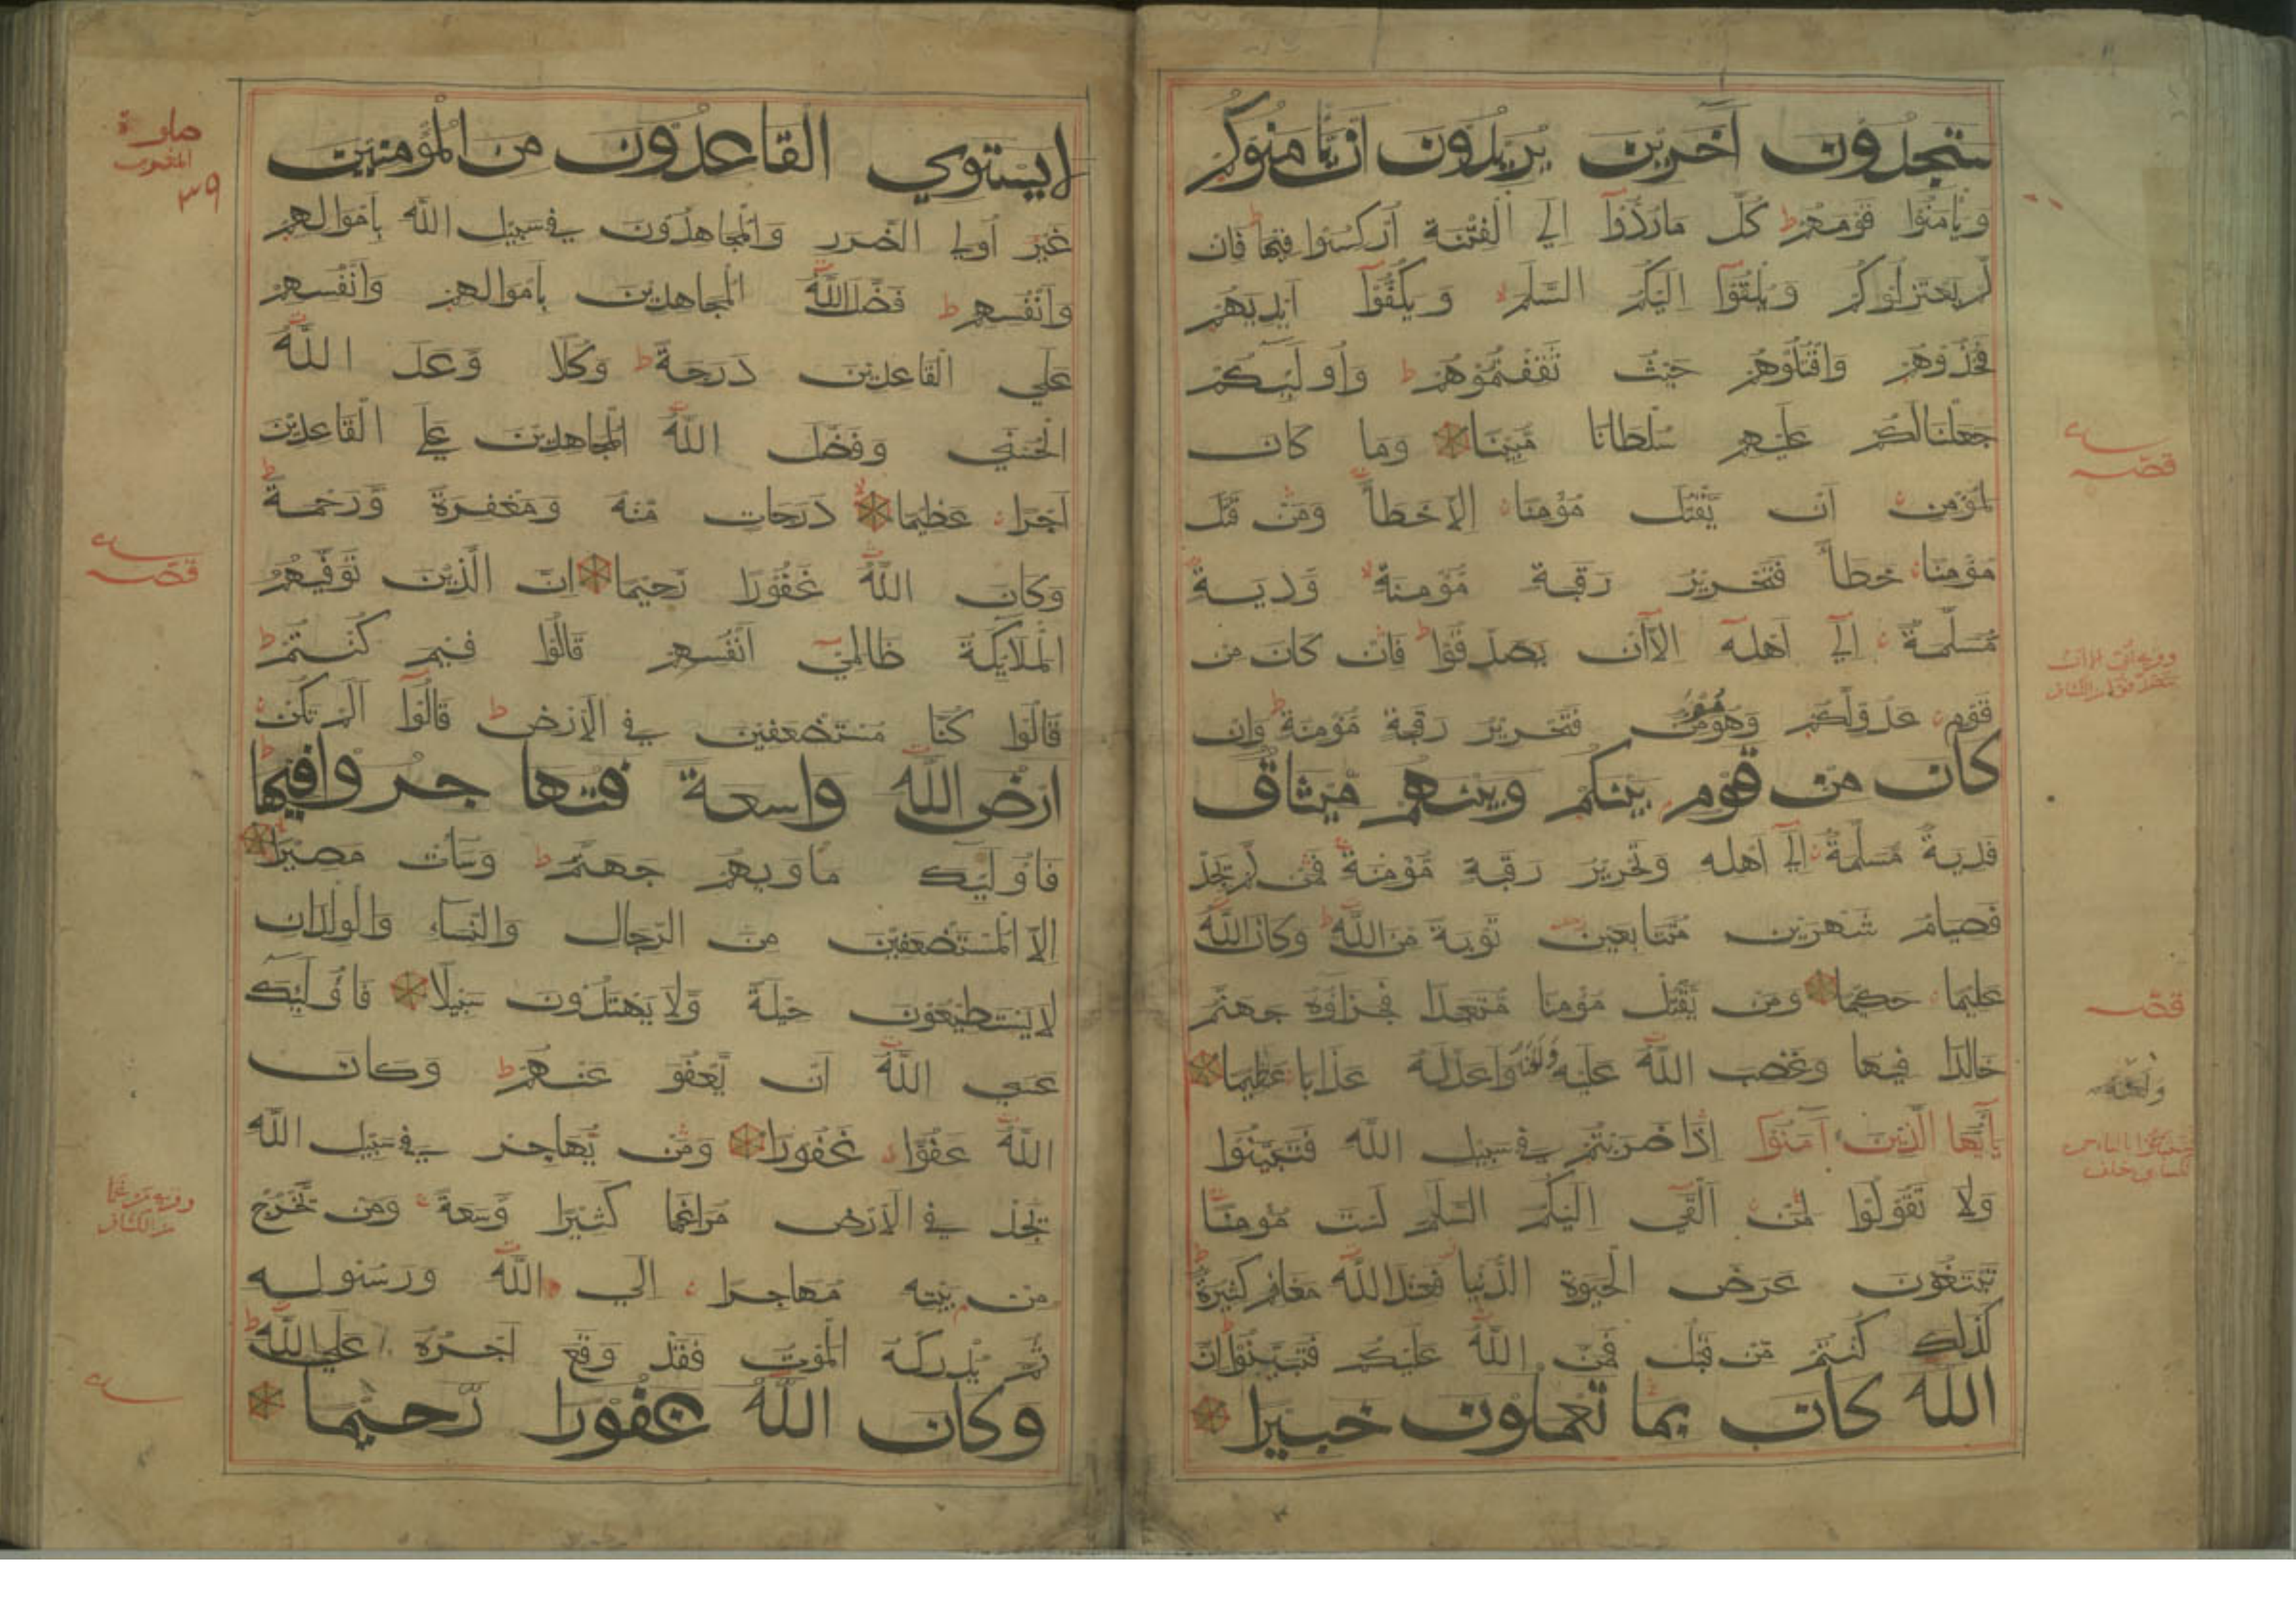 ستجدون آخرين يريدون ان يأمنوكم
ويأمنوا قومهم ط كل ما ردوا الي الفتنة اركسوا فيها فان
لم يعتزلوكم ويلقوا اليكم السلم ويكفوا ايديهم
فخذوهم واقتلوهم حيث ثقفتموهم ط واولئكم
جعلنا لكم عليهم سلطانا مبينا وما كان
لمؤمن ان يقتل مؤمنا الا خطأ ومن قتل
مؤمنا خطأ فتحرير رقبة مؤمنة ودية
مسلمة الي اهله الا ان يصدقوا ط فان كان من
قوم عدو لكم وهو مؤمن فتحرير رقبة مؤمنة ط وان
كان من قوم بينكم وبينهم ميثاق
فدية مسلمة الي اهله وتحرير رقبة مؤمنة فمن لم يجد
فصيام شهرين متتابعين توبة من الله ط وكان الله
عليما حكيما ومن يقتل مؤمنا متعمدا فجزاؤه جهنم
خالدا فيها وغضب الله عليه ولعنه واعد له عذابا عظيما
يايها الذين آمنوا اذا ضربتم في سبيل الله فتبينوا
ولا تقولوا لمن القي اليكم السلم لست مؤمنا
تبتغون عرض الحيوة الدنيا فعند الله مغانم كثيرة
كذلك كنتم من قبل فمن الله عليكم فتبينوا ط ان
الله كان بما تعملون خبيرا
قصه
قصه
ولعنه
لا يستوي القاعدون من المؤمنين
غير اولي الضرر والمجاهدون في سبيل الله باموالهم
وانفسهم ط فضل الله المجاهدين باموالهم وانفسهم
علي القاعدين درجة ط وكلا وعد الله
الحسني وفضل الله المجاهدين علي القاعدين
اجرا عظيما درجات منه ومغفرة ورحمة ط
وكان الله غفورا رحيما ان الذين توفيهم
الملائكة ظالمي انفسهم قالوا فيم كنتم ط
قالوا كنا مستضعفين في الارض ط قالوا الم تكن
ارض الله واسعة فتها جروا فيها ط
فاولئك ماويهم جهنم ط وساءت مصيرا
الا المستضعفين من الرجال والنساء والولدان
لا يستطيعون حيلة ولا يهتدون سبيلا فاولئك
عسي الله ان يعفو عنهم ط وكان
الله عفوا غفورا ومن يهاجر في سبيل الله
يجد في الارض مراغما كثيرا وسعة ومن يخرج
من بيته مهاجرا الي الله ورسوله
ثم يدركه الموت فقد وقع اجره علي الله ط
وكان الله غفورا رحيما
٣٩
قصه